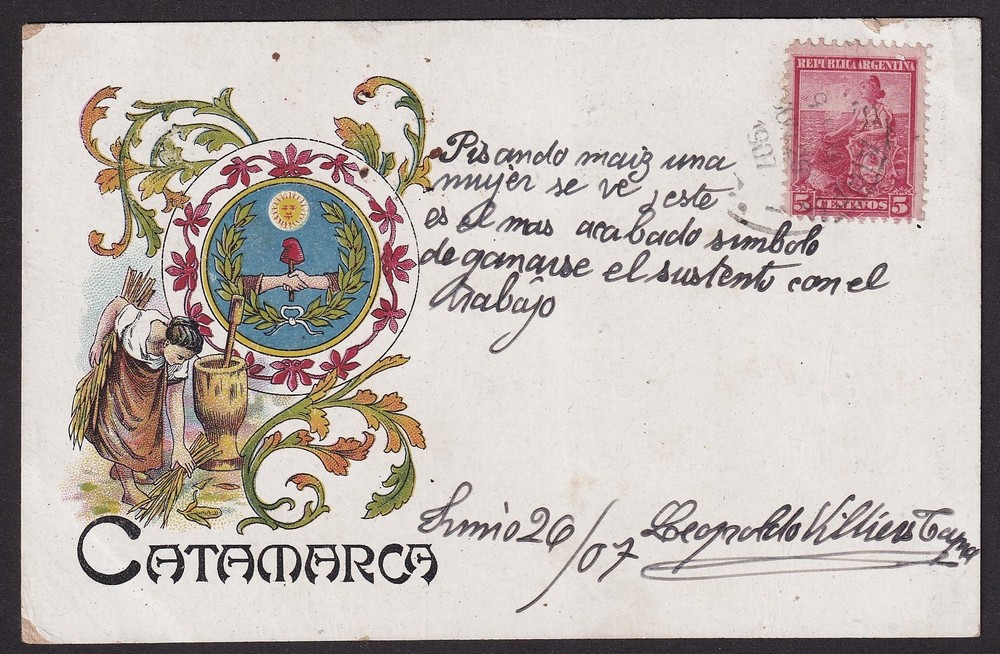 REPUBLICA ARGENTINA
5 CENTAVOS 5
1907
Pisando maiz una
mujer se ve, este
es el mas acabado simbolo
de ganarse el sustento con el
trabajo
Junio 26/07 Leopoldo Villiers Tapia
CATAMARCA